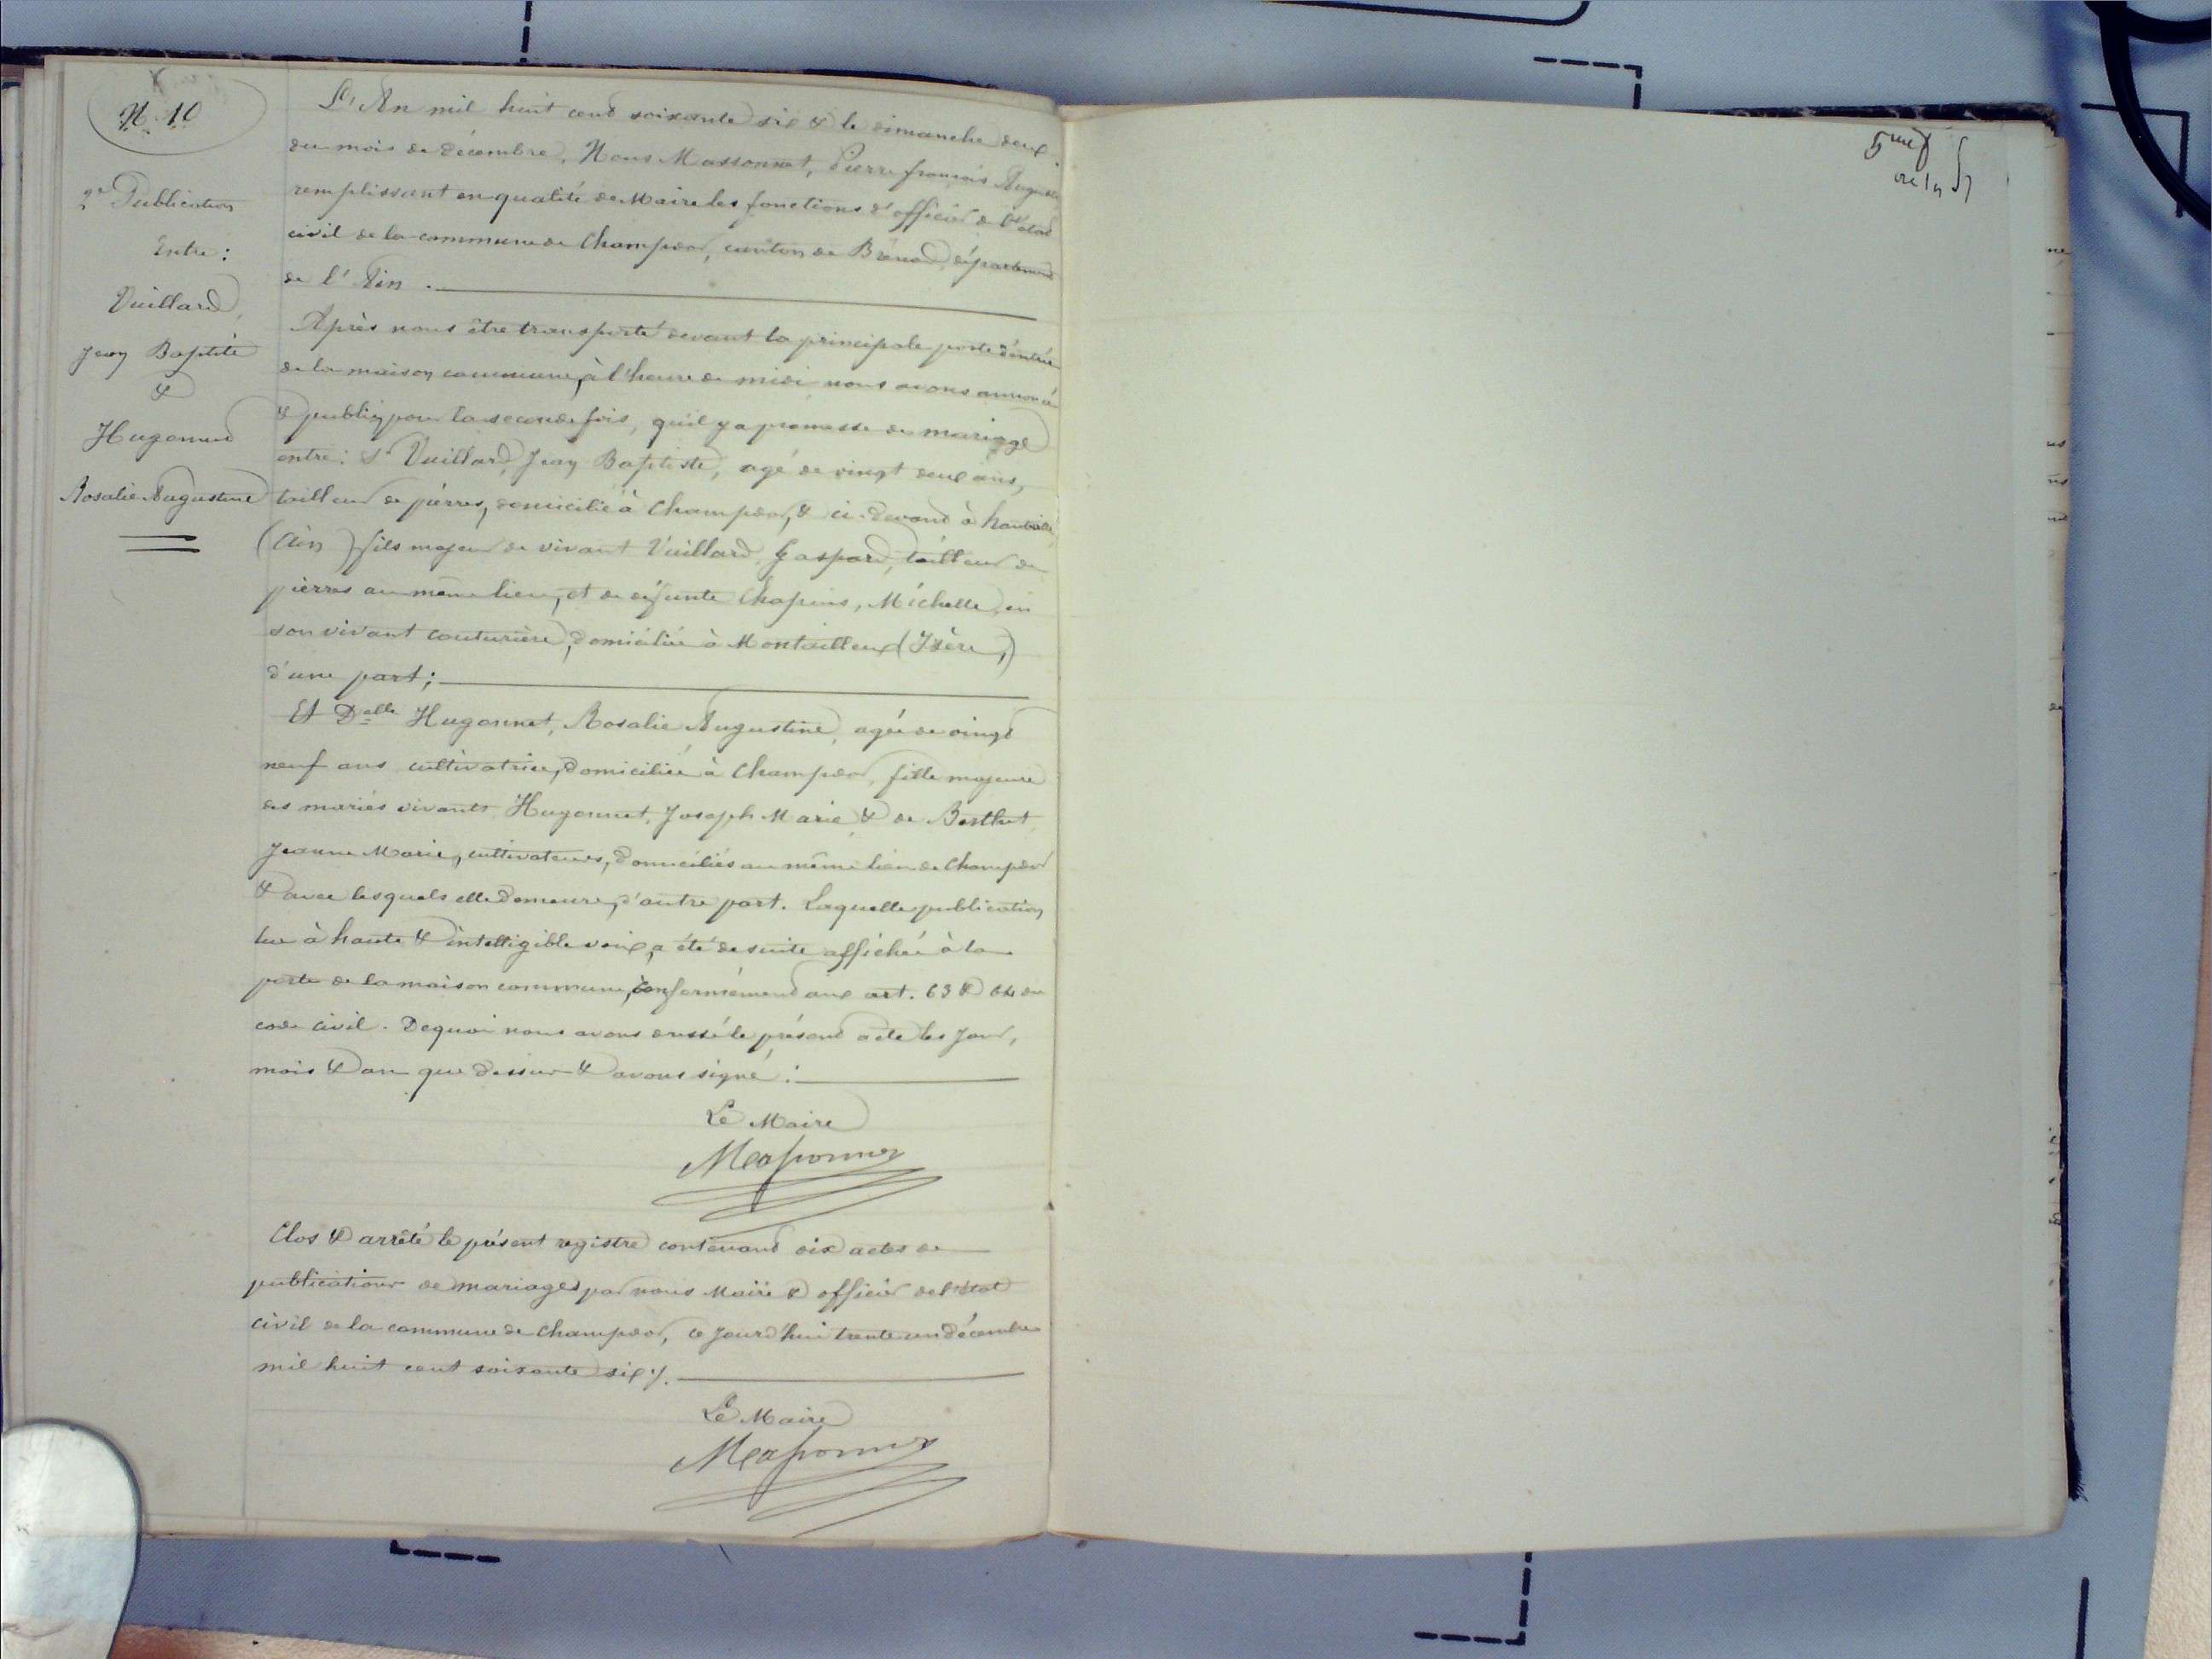 N. 10
2e Publication
Entre :
Vuillard,
Jean Baptiste
&
Hugonnet
Rosalie Augustine
L'An mil huit cent soixante six & le dimanche deux
du mois de décembre, Nous Massonnet, Pierre françois Auguste,
remplissant en qualité de Maire les fonctions d'officier de l'état
civil de la commune de Champdor, canton de Brénod, département
de l'Ain .
Après nous être transporté devant la principale porte d'entrée
de la maison commune, à l'heure de midi nous avons annoncé
& publié, pour la seconde fois, qu'il y a promesse de mariage
entre : Sr Vuillard, Jean Baptiste, agé de vingt deux ans,
tailleur de pierres, domicilié à Champdor, & ci-devant à hauteville
(Ain) fils majeur de vivant Vuillard, Gaspard, tailleur de
pierres au même lieu, et de défunte Chapuis, Michelle, en
son vivant couturière, domiciliée à Montailleux (Isère,)
d'une part ;
Et Delle Hugonnet, Rosalie Augustine, agée de vingt
neuf ans cultivatrice, domiciliée à Champdor, fille majeure
des mariés vivants Hugonnet, Joseph Marie & de Berthet
Jeanne Marie, cultivateurs, domiciliés au même lieu de Champdor
& avec lesquels elle demeure, d'autre part. Laquelle publication
lue à haute & intelligible voix, a été de suite affichée à la
porte de la maison commune, conformément aux art. 63 & 64 du
code civil. De quoi nous avons dressé le présent acte les jour,
mois & an que dessus & avons signé :
Le Maire
Massonnet
Clos & arrêté le présent registre contenant dix actes de
publications de mariages par nous Maire & officier de l'état
civil de la commune de Champdor, ce jourd'hui trente un décembre
mil huit cent soixante six ./.
Le Maire
Massonnet